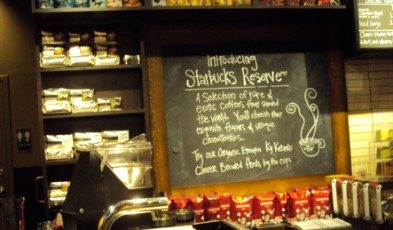 Introducing
Starbucks Reserve™
A Selection of rare &
exotic Coffees from around
the world. You'll cherish their
exquisite flavors & unique
characteristics.
Try our Organic Ethiopia
Clover Brewed fresh, by the cup